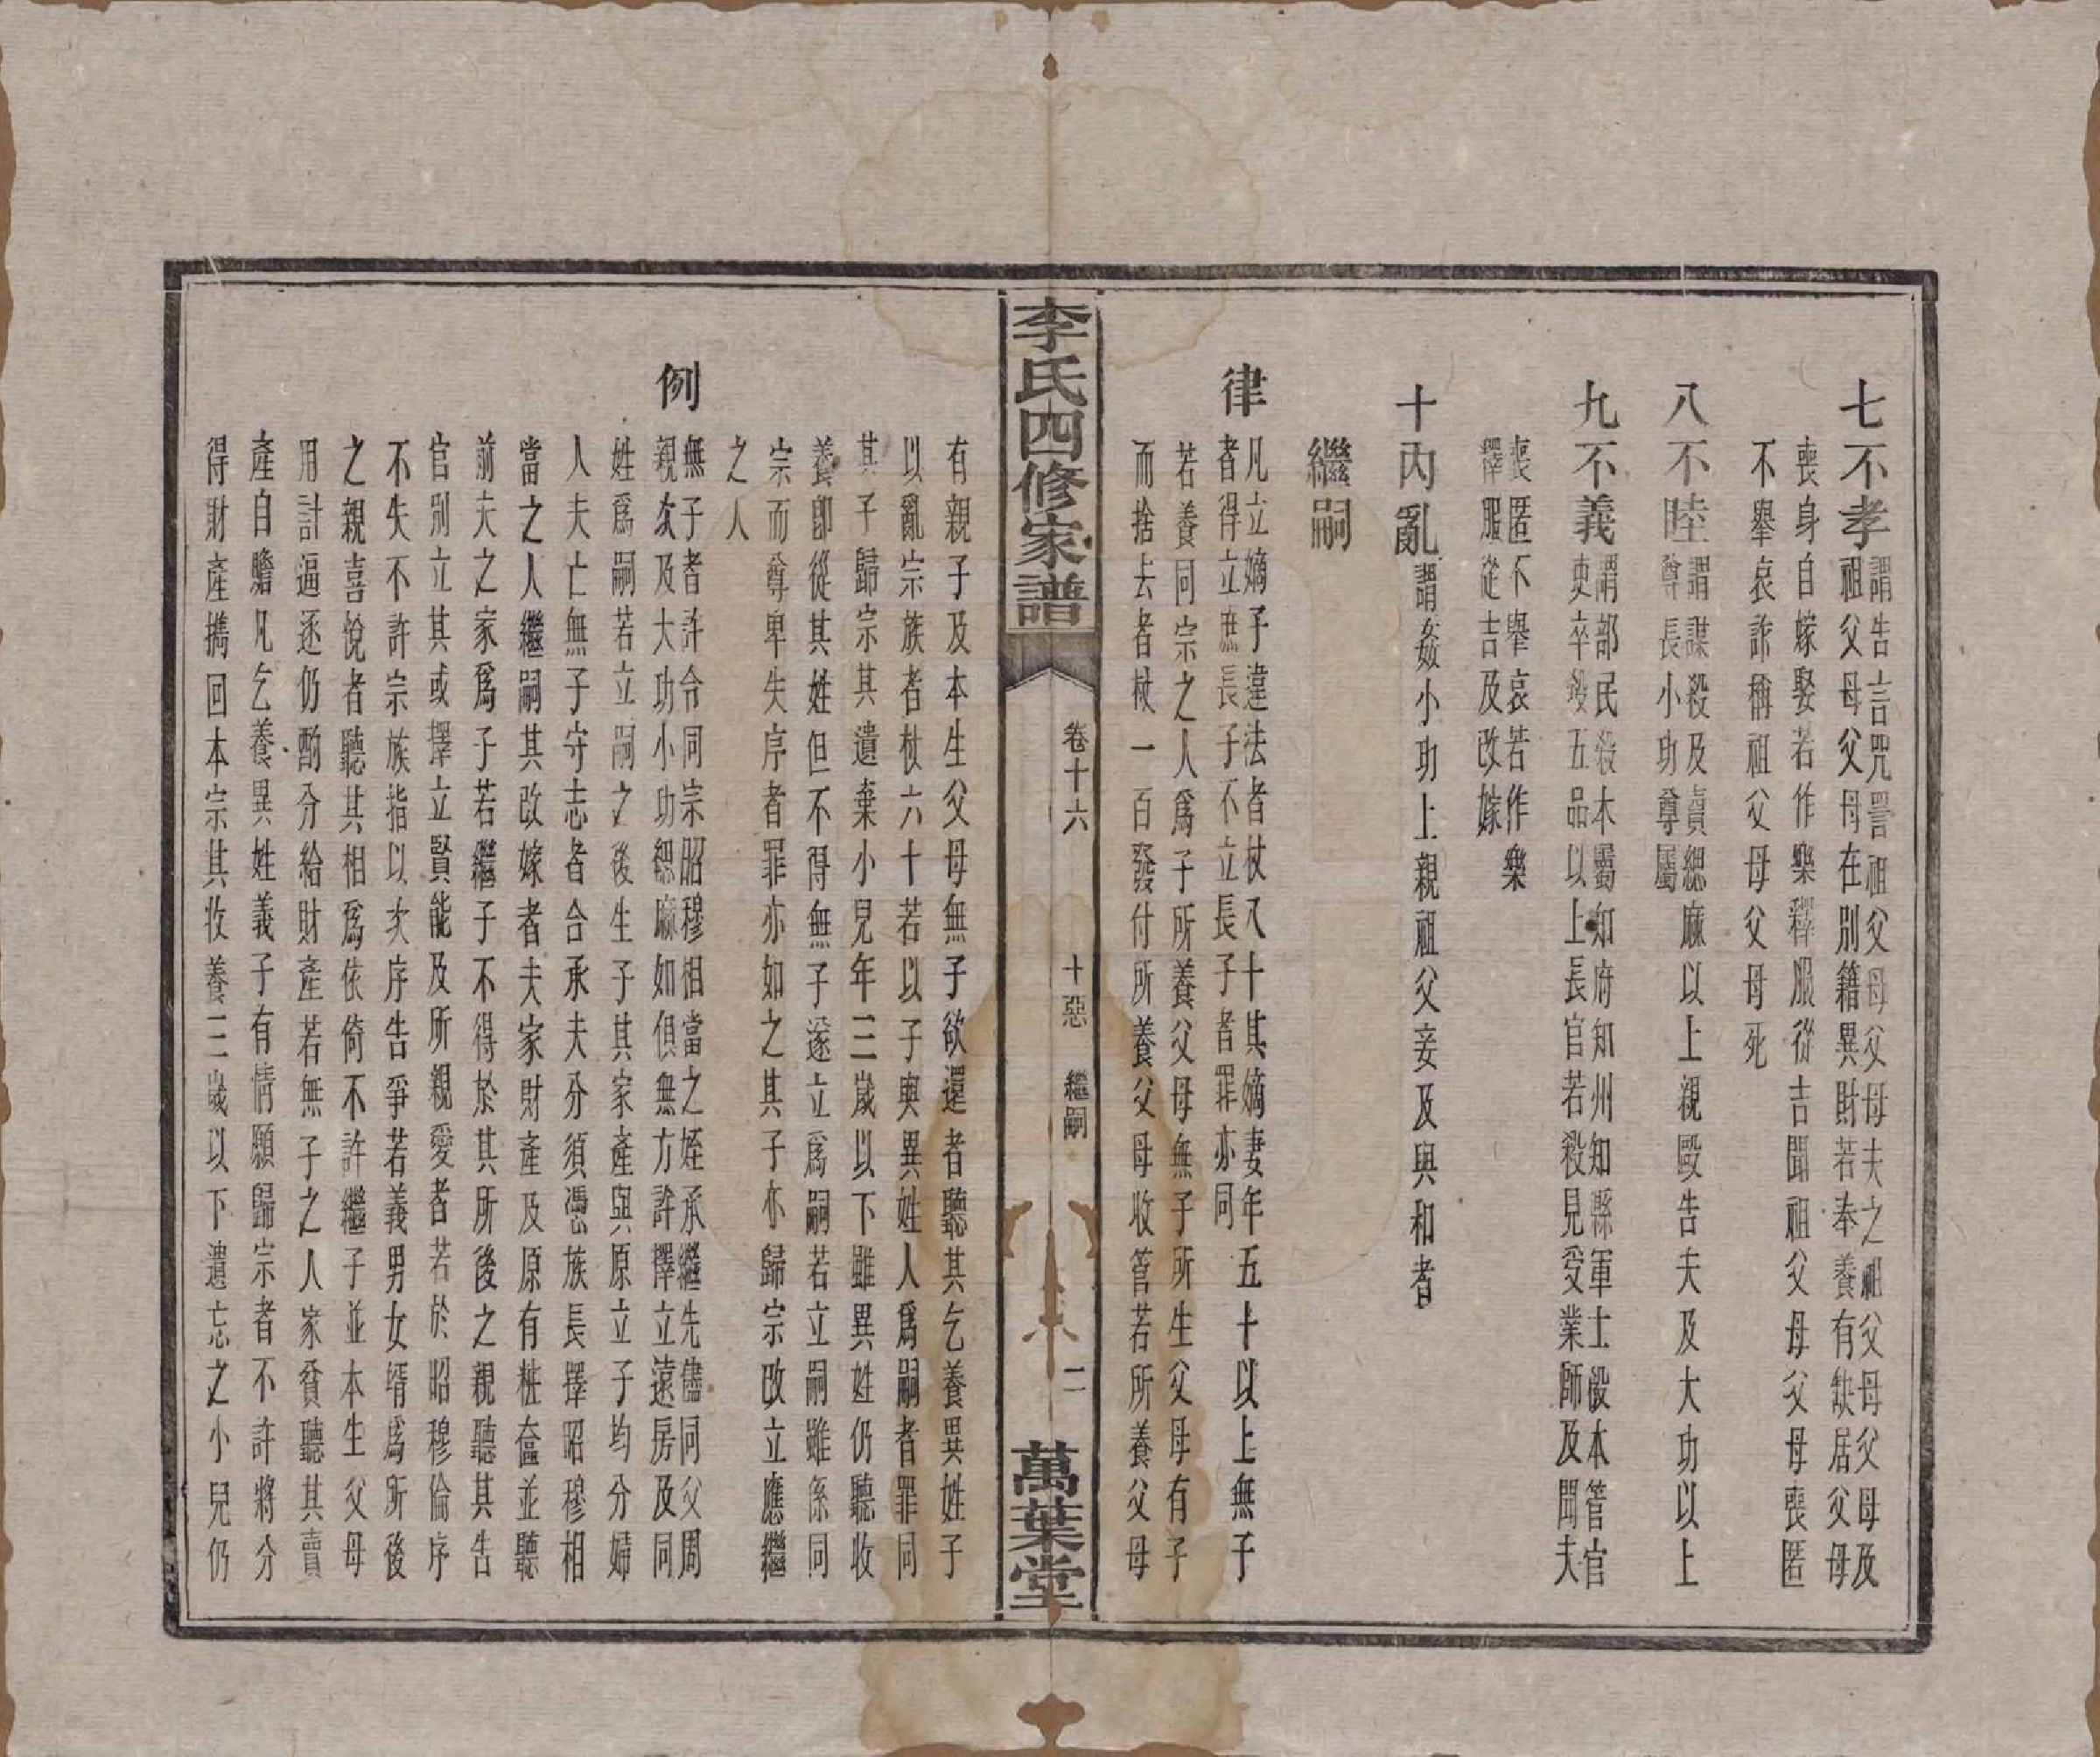 七不孝謂告言咒詈祖父母父母夫之祖父母父母及
祖父母父母在別籍異財若奉養有缺居父母
喪身自嫁娶若作樂釋服從吉聞祖父母父母喪匿
不舉哀詐稱祖父母父母死
八不睦謂謀殺及賣緦麻以上親毆告夫及大功以上
尊長小功尊屬
九不義謂部民殺本屬知府知州知縣軍士殺本管官
吏卒殺五品以上長官若殺見受業師及聞夫
喪匿不舉哀若作樂
釋服從吉及改嫁
十內亂謂姦小功上親祖父妾及與和者
繼嗣
律凡立嫡子違法者杖八十其嫡妻年五十以上無子
者得立庶長子不立長子者罪亦同
若養同宗之人爲子所養父母無子所生父母有子
而捨去者杖一百發付所養父母收管若所養父母
李氏四修家譜
卷十六
十惡 繼嗣
二
萬葉堂
有親子及本生父母無子欲還者聽其乞養異姓子
以亂宗族者杖六十若以子與異姓人爲嗣者罪同
其子歸宗其遺棄小兒年三歲以下雖異姓仍聽收
養卽從其姓但不得無子遂立爲嗣若立嗣雖係同
宗而尊卑失序者罪亦如之其子亦歸宗改立應繼
之人
例無子者許令同宗昭穆相當之姪承繼先儘同父周
親次及大功小功緦麻如俱無方許擇立遠房及同
姓爲嗣若立嗣之後生子其家產與原立子均分婦
人夫亡無子守志者合承夫分須憑族長擇昭穆相
當之人繼嗣其改嫁者夫家財產及原有粧奩並聽
前夫之家爲子若繼子不得於其所後之親聽其告
官別立其或擇立賢能及所親愛者若於昭穆倫序
不失不許宗族指以次序告爭若義男女壻爲所後
之親喜悅者聽其相爲依倚不許繼子並本生父母
用計逼逐仍酌分給財產若無子之人家貧聽其賣
產自贍凡乞養異姓義子有情願歸宗者不許將分
得財產攜回本宗其收養三歲以下遺忘之小兒仍